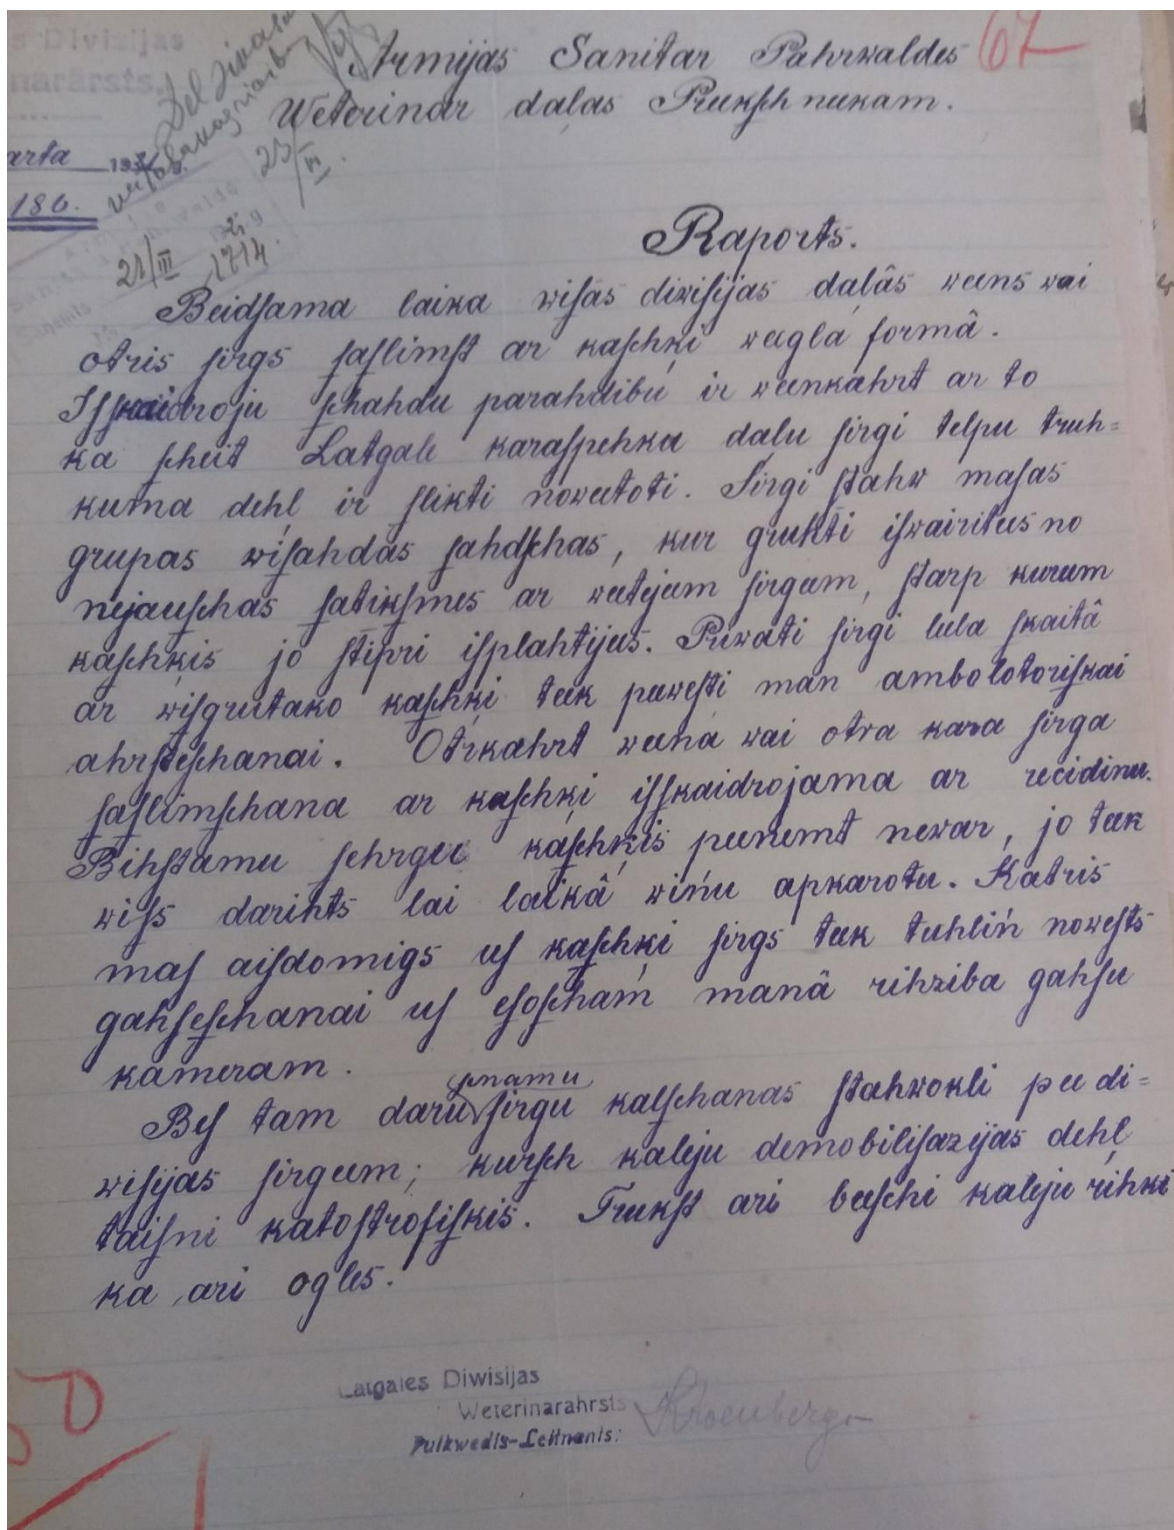 s Divizijas
narārsts.
arta
186.
21/III 1714.
23/III.
67
Armijas Sanitar Pahrwaldes
Weterinar daļas Preekschneekam.
Raports.
Beidſama laika wiſās diwiſijas daļâs weens wai
otris ſirgs ſaſlimſt ar kaſchķi weeglâ formâ.
Iſſkaidroju ſchahdu parahdibu ir weenkahrt ar to
ka ſcheit Latgale karaſpehka daļu ſirgi telpu truh=
kuma dehļ ir ſlikti noweetoti. Sirgi ſtahw maſas
grupas wiſahdās ſahdſchas, kur gruhti iſwairitees no
nejauſchas ſatikſmes ar weetejeem ſirgeem, ſtarp kureem
kaſchķis jo ſtipri iſplahtijees. Priwati ſirgi leela ſkaitâ
ar wiſgrutako kaſchķi teek peeweſti man ambolotoriſkai
ahrſteſchanai. Otrkahrt weena wai otra kara ſirga
ſaſlimſchana ar kaſchķi iſſkaidrojama ar recidiwu.
Bihſtamu ſehrgu kaſchķis peeņemt newar, jo teek
wiſs darihts lai laikâ wiņu apkarotu. Katris
maſ aiſdomigs uſ kaſchķi ſirgs teek tuhliń noweſts
gahſeſchanai uſ eſoſcham manâ rihziba gahſu
kameram.
Beſ tam daru ſinamu ſirgu kalſchanas ſtahwokli pee di=
wiſijas ſirgeem; kurſch kaleju demobiliſazijas dehļ
taiſni kataſtrofiſkis. Truhkſt ari beeſchi kaleju rihki
ka ari ogles.
Latgales Diwisijas
Weterinarahrsts
Pulkwedis-Leitnants:
50